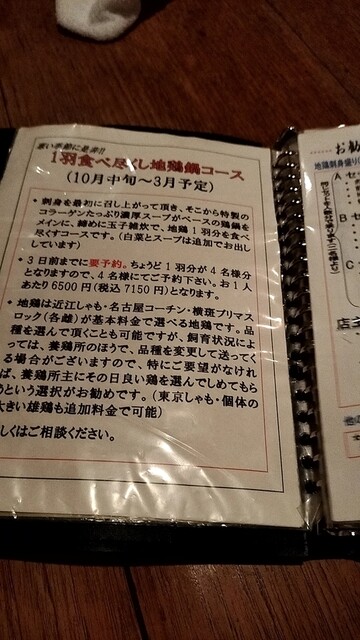 寒い季節に是非!!
1羽食べ尽くし地鶏鍋コース
(10月中旬～3月予定)
・刺身を最初に召し上がって頂き、そこから特製の
コラーゲンたっぷり濃厚スープがベースの鶏鍋を
メインに、締めに玉子雑炊で、地鶏1羽分を食べ
尽くすコースです。(白菜とスープは追加でお出し
しています)
・3日前までに要予約。ちょうど1羽分が4名様分
となりますので、4名様にてご予約下さい。お1人
あたり6500円(税込7150円)となります。
・地鶏は近江しゃも・名古屋コーチン・横斑プリマス
ロック(各雌)が基本料金で選べる地鶏です。品
種を選んで頂くことも可能ですが、飼育状況によ
っては、養鶏所のほうで、品種を変更して送ってく
る場合がございますので、特にご要望がなけれ
ば、養鶏所主にその日良い鶏を選んでしめてもら
うという選択がお勧めです。(東京しゃも・個体の
大きい雄鶏も追加料金で可能)
しくはご相談ください。
……お勧
地鶏刺身盛り
A
B
C
店
他の